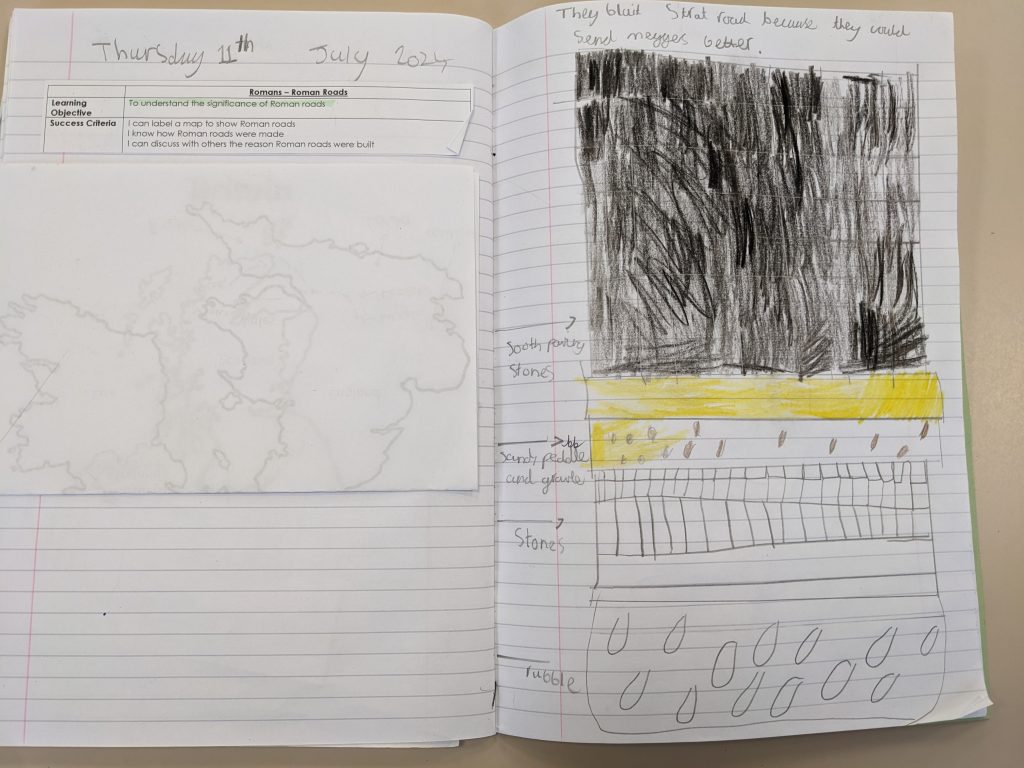 Thursday 11th July 2024
Romans – Roman Roads
Learning Objective
To understand the significance of Roman roads
Success Criteria
I can label a map to show Roman roads
I know how Roman roads were made
I can discuss with others the reason Roman roads were built
They bluit Strat road because they could
Send better.
Stones
and
Stones
rubble